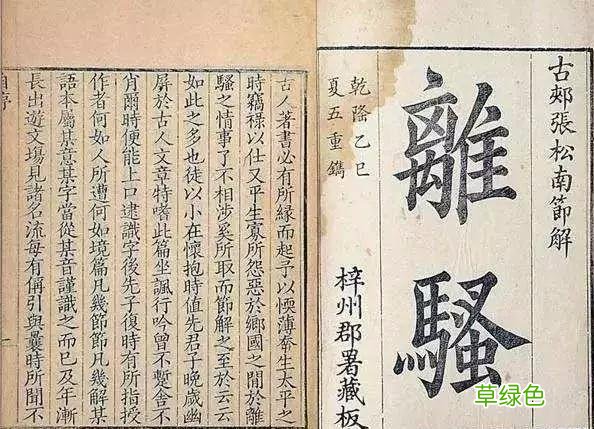 古郟張松南節解
離騷
乾隆乙巳
夏五重鐫
梓州郡署藏板
古人著書必有所緣而起予以愞薄幸生太平之
時竊祿以仕又平生寡所怨惡於鄉國之閒於離
騷之情事了不相涉奚所取而節解之至於云云
如此之多也徒以小在懷抱時值先君子晚歲幽
屏於古人文章特嗜此篇坐諷行吟曾不蹔舍不
肖爾時便能上口逮識字後先子復時有所指授
作者何如人所遭何如境篇凡幾節節凡幾解某
語本屬某意某字當從某音謹識之而已及年漸
長出遊文場見諸名流每有偁引與曩時所聞不
草绿色